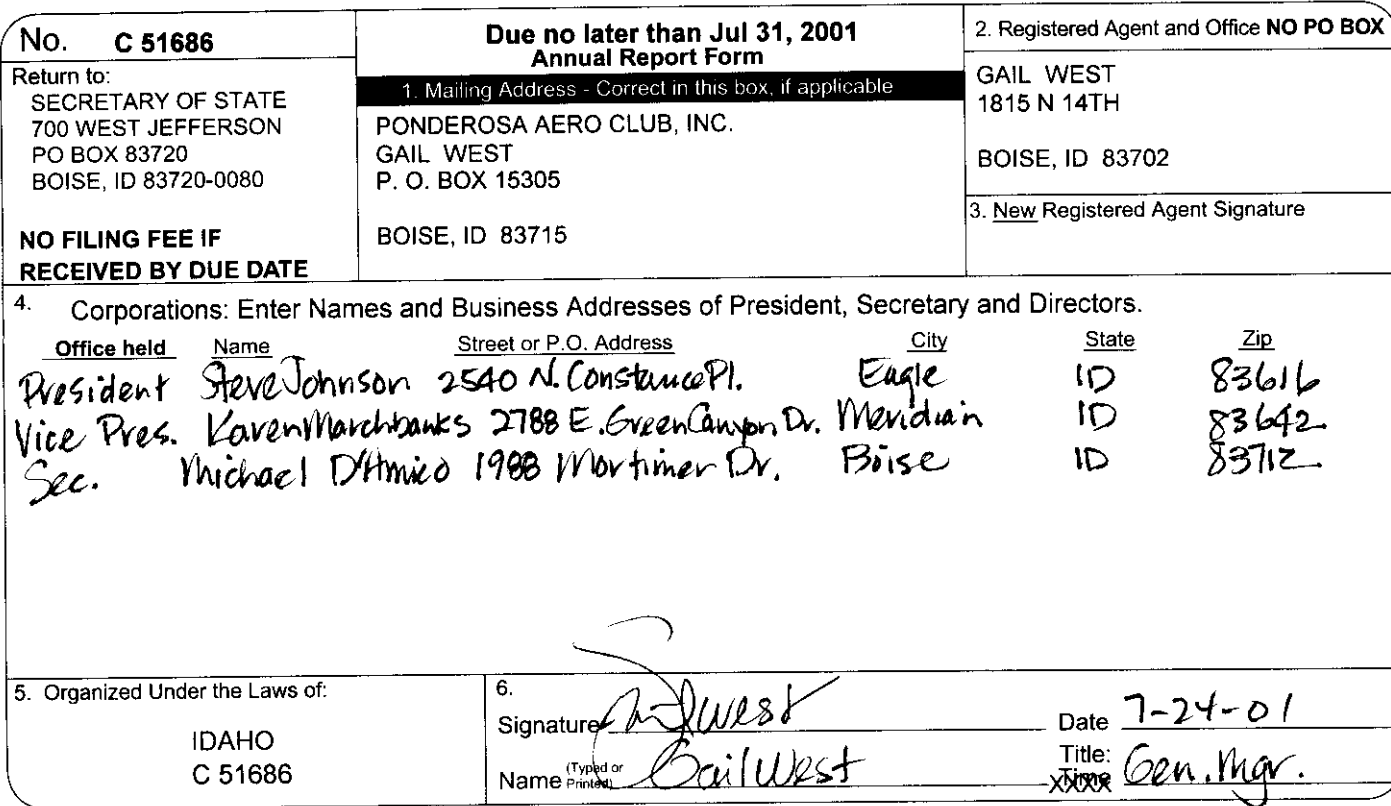 No. C 51686
Return to:
SECRETARY OF STATE
700 WEST JEFFERSON
PO BOX 83720
BOISE, ID 83720-0080
NO FILING FEE IF
RECEIVED BY DUE DATE
Due no later than Jul 31, 2001
Annual Report Form
1. Mailing Address - Correct in this box, if applicable
PONDEROSA AERO CLUB, INC.
GAIL WEST
P. O. BOX 15305
BOISE, ID 83715
2. Registered Agent and Office NO PO BOX
GAIL WEST
1815 N 14TH
BOISE, ID 83702
3. New Registered Agent Signature
4. Corporations: Enter Names and Business Addresses of President, Secretary and Directors.
Office held Name Street or P.O. Address City State Zip
President Steve Johnson 2540 N. Constance Pl. Eagle ID 83616
Vice Pres. Karen Marchbanks 2788 E. Green Canyon Dr. Meridian ID 83642
Sec. Michael D'Amico 1988 Mortimer Dr. Boise ID 83712
5. Organized Under the Laws of:
IDAHO
C 51686
6.
Signature Gail West Date 7-24-01
Name (Typed or Printed) Gail West Title: Gen. Mgr.